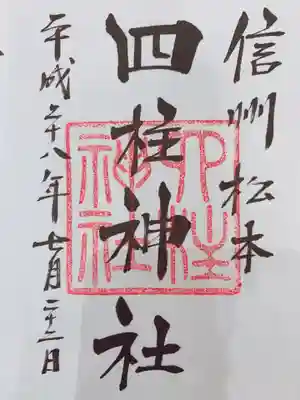 信州 松本
四柱神社
平成二十八年 七月 二十二日
四柱神社